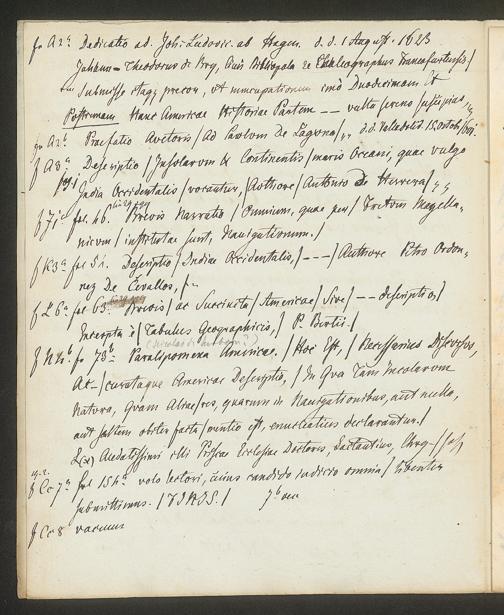 f A2ᵃ Dedicatio ad. Joh: Ludovic. ab Hagen. d. d. 1 August. 1623
Johann-Theodorus de Bry, Civis Bibliopola & Chalcographus Francofurtensis/
Submisse precor, ut imo Duodecimam Et
Postremam Hanc Americae Historiae Partem -- vultu sereno suscipias,
Praefatio Avctoris/Ad Pavlvm de Lagvna/, d.d. Valledolid. 15. Octob.
f A3ᵃ Descriptio/Insolarvm & Continentis/maris Oceani, quae vulgo
pg 1 India Occidentalis/vocantur, Avthore/Antonio De Herrera/
f 71ᵃ fol. 46. Brevis Narratio/Omnium, quae per/Fretvm Magella-
nicvm/institutae sunt, Navigationum./
f K3ᵃ fol 51. Descriptio/Indiae Occidentalis,/---/Authore Petro Ordon-
nez De Cevallos,
fol 63. Brevis/ac Succincta/Americae/Sive/--descriptio,/
Excerpta è/Tabulis Geographicis,/P. Bertii./
73ᵇ Paralipomena Americae./Hoc Est,/Necessarius Discursus,
Ac-/curataque Americae Descriptio,/In Qva Tam Incolarvm
Natvra, Qvam Aliae/res, quarum in Navigationibus, aut nulla,
aut saltem obiter facta/mentio est, enucleatius declarantur./
Ecclesiae Doctores, Lactantius,
fol 154ᵃ volo lectori, cuius candido iudicio omnia/libenter
submittimus./FINIS./ 7ᵇ vac
f Cc 8 vacuus